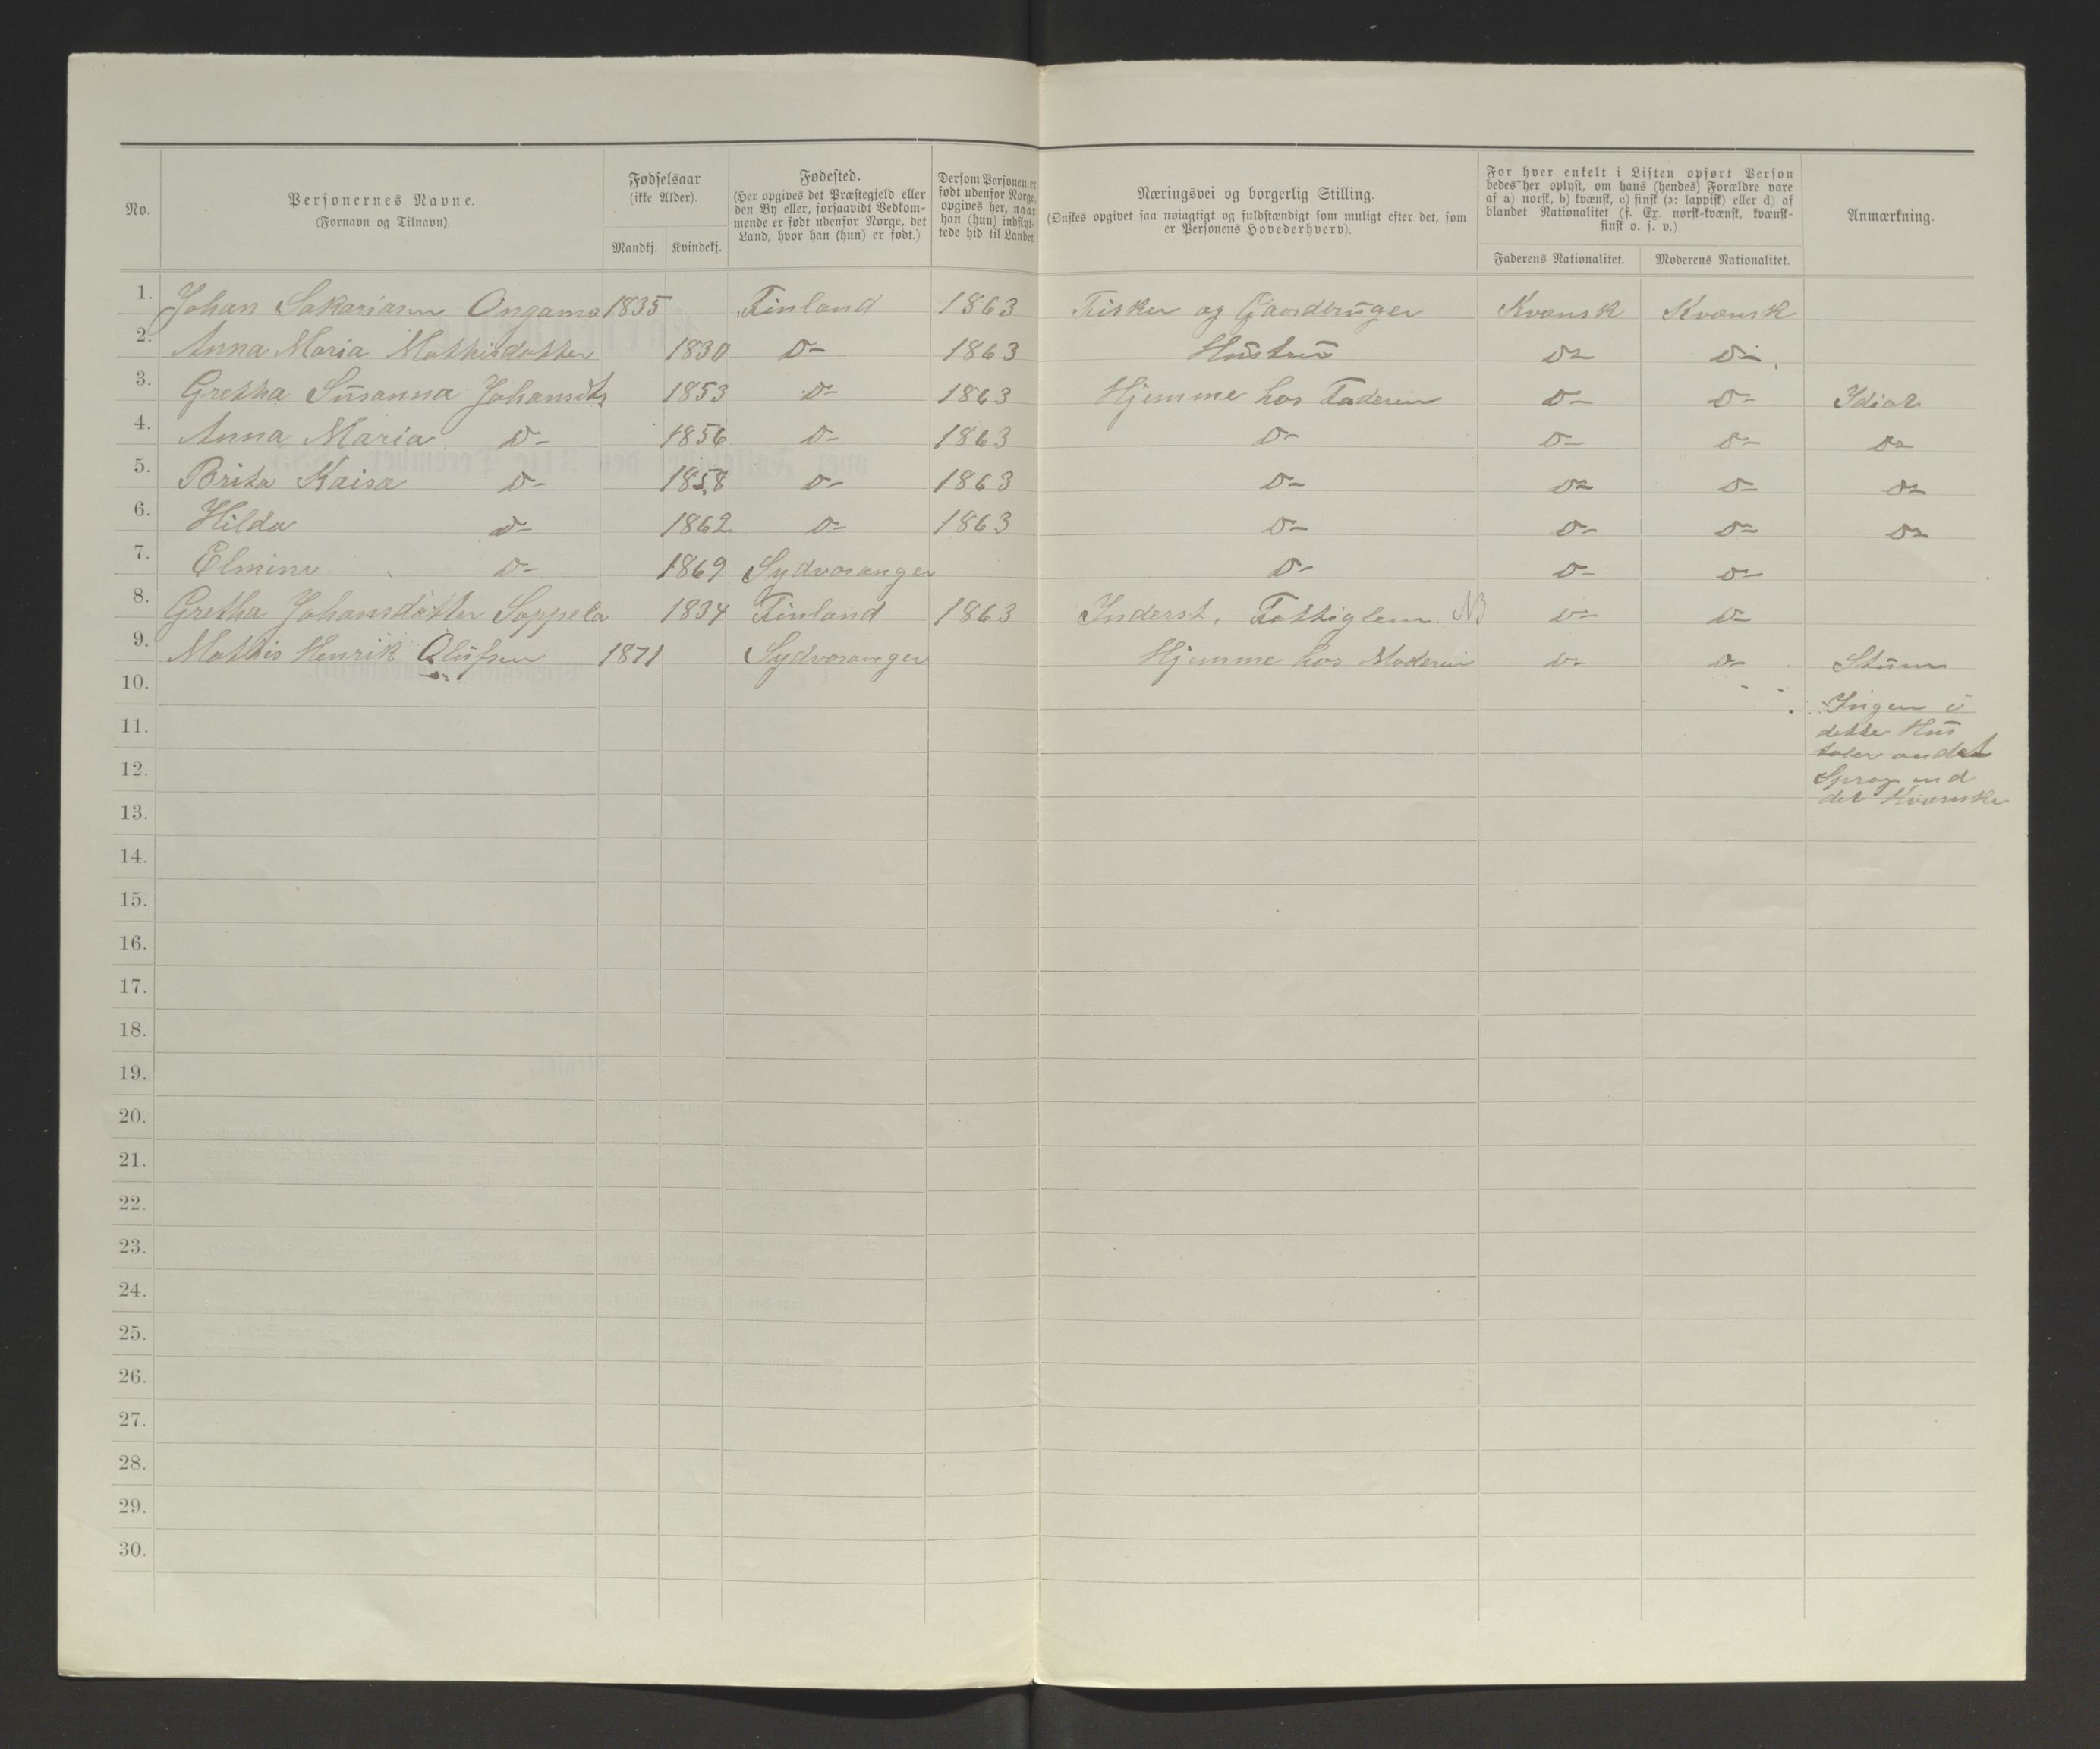 No.
Personernes Navne.
(Fornavn og Tilnavn).
Fødselsaar
(ikke Alder).
Mandkj. Kvindekj.
Fødested.
(Her opgives det Præstegjeld eller
den By eller, forsaavidt Vedkom-
mende er født udenfor Norge, det
Land, hvor han (hun) er født.)
Dersom Personen er
født udenfor Norge,
opgives her, naar
han (hun) indflyt-
tede hid til Landet.
Næringsvei og borgerlig Stilling.
(Ønskes opgivet saa nøiagtigt og fuldstændigt som muligt efter det, som
er Personens Hovederhverv).
For hver enkelt i Listen opført Person
bedes her oplyst, om hans (hendes) Forældre vare
af a) norsk, b) kvænsk, c) finsk (ɔ: lappisk) eller d) af
blandet Nationalitet (f. Ex. norsk-kvænsk, kvænsk-
finsk o. s. v.)
Faderens Nationalitet. Moderens Nationalitet.
Anmærkning.
1. Johan Sakariasen Ongamo 1835 Finland 1863 Fisker og Gaardbruger Kvænsk Kvænsk
2. Anna Maria Mathisdatter 1830 D- 1863 Hustru D- D-
3. Gretha Susanna Johansdtr 1853 D- 1863 Hjemme hos Faderen D- D- Idiot
4. Anna Maria D- 1856 D- 1863 D- D- D- D-
5. Brita Kaisa D- 1858 D- 1863 D- D- D- D-
6. Hilda D- 1862 D- 1863 D- D- D- D-
7. Elmine D- 1869 Sydvaranger D- D- D-
8. Gretha Johansdatter Soppela 1834 Finland 1863 Inderst, Fattiglem NB D- D-
9. Mathis Henrik Olufsen 1871 Sydvaranger Hjemme hos Moderen D- D- Stum
10.
Ingen i
11.
dette Hus
taler andet
12.
Sprog end
det Kvænske
13.
14.
15.
16.
17.
18.
19.
20.
21.
22.
23.
24.
25.
26.
27.
28.
29.
30.